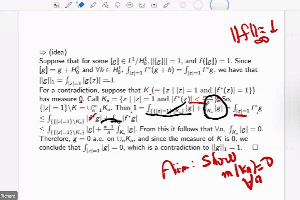 ⇒ (idea)
Suppose that for some [g] ∈ L¹/H₀¹, |||[g]||| = 1, and f([g]) = 1. Since
[g] = g + H₀¹ and ∀h ∈ H₀¹, ∫|z|=1 f*(g + h) = ∫|z|=1 f*g, we have that
||g||₁ = ∫|z|=1 |g(z)| = 1.
For a contradiction, suppose that K = {z | |z| = 1 and |f*(z)| = 1}
has measure 0. Call Kₙ = {z | |z| = 1 and |f*(z)| ≤
|z| = 1} \ K = ∪ Kₙ. Then 1 = ∫ f*g
≤ ∫{|z|=1}\Kₙ |g| + ∫Kₙ |g|. From this it follows that ∀n, ∫Kₙ |g| = 0.
Therefore, g = 0 a.e. on ∪ₙKₙ, and since the measure of K is 0, we
conclude that ∫|z|=1 |g| = 0, which is a contradiction to ||g||₁ = 1. □
||f||∞ = 1
Aim: Show
m(Kₙ) = 0
∀n
Richard